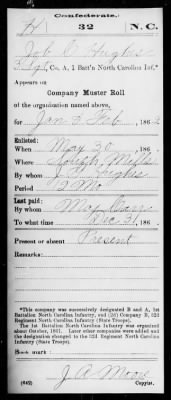 Confederate.
H 32 N.C.
Hughes
3 Sgt, Co. A, 1 Batt'n North Carolina Inf.*
Appears on
Company Muster Roll
of the organization named above,
for Jan & Feb, 1862
Enlisted:
When May 30, 186
Where Mills
By whom Hughes
Period 12 Mo
Last paid:
By whom Maj
To what time Dec 31, 186
Present or absent Present
Remarks:
*This company was successively designated B and A, 1st
Battalion North Carolina Infantry, and (2d) Company B, 32d
Regiment North Carolina Infantry (State Troops).
The 1st Battalion North Carolina Infantry was organized
about October, 1861. Other companies were added and the
designation changed to the 32d Regiment North Carolina
Infantry (State Troops).
Book mark:
(642) J. A. Moore
Copyist.